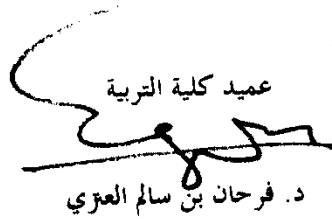 عميد كلية التربية
د. فرحان بن سالم العنزي